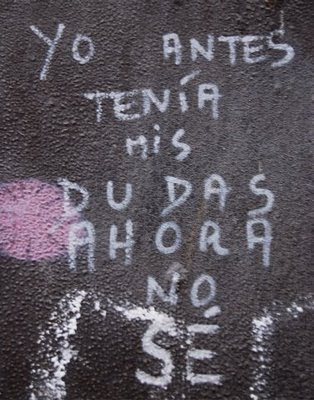 YO ANTES
TENÍA
MIS
DUDAS
AHORA
NO
SÉ